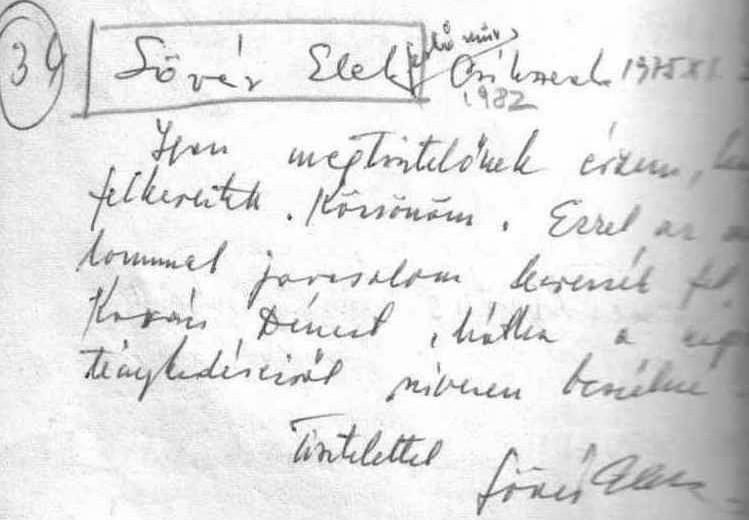 34 Sövér Elek festőműv. Csíkszereda 1975 XI.
1982
Igen megtisztelőnek érzem,
felkerestek. Köszönöm. Ezzel az
lommal javasolom keressék fel
Kovács Dénest, hátha a
ténykedéseiről szívesen beszélne
Tisztelettel
Sövér Elek